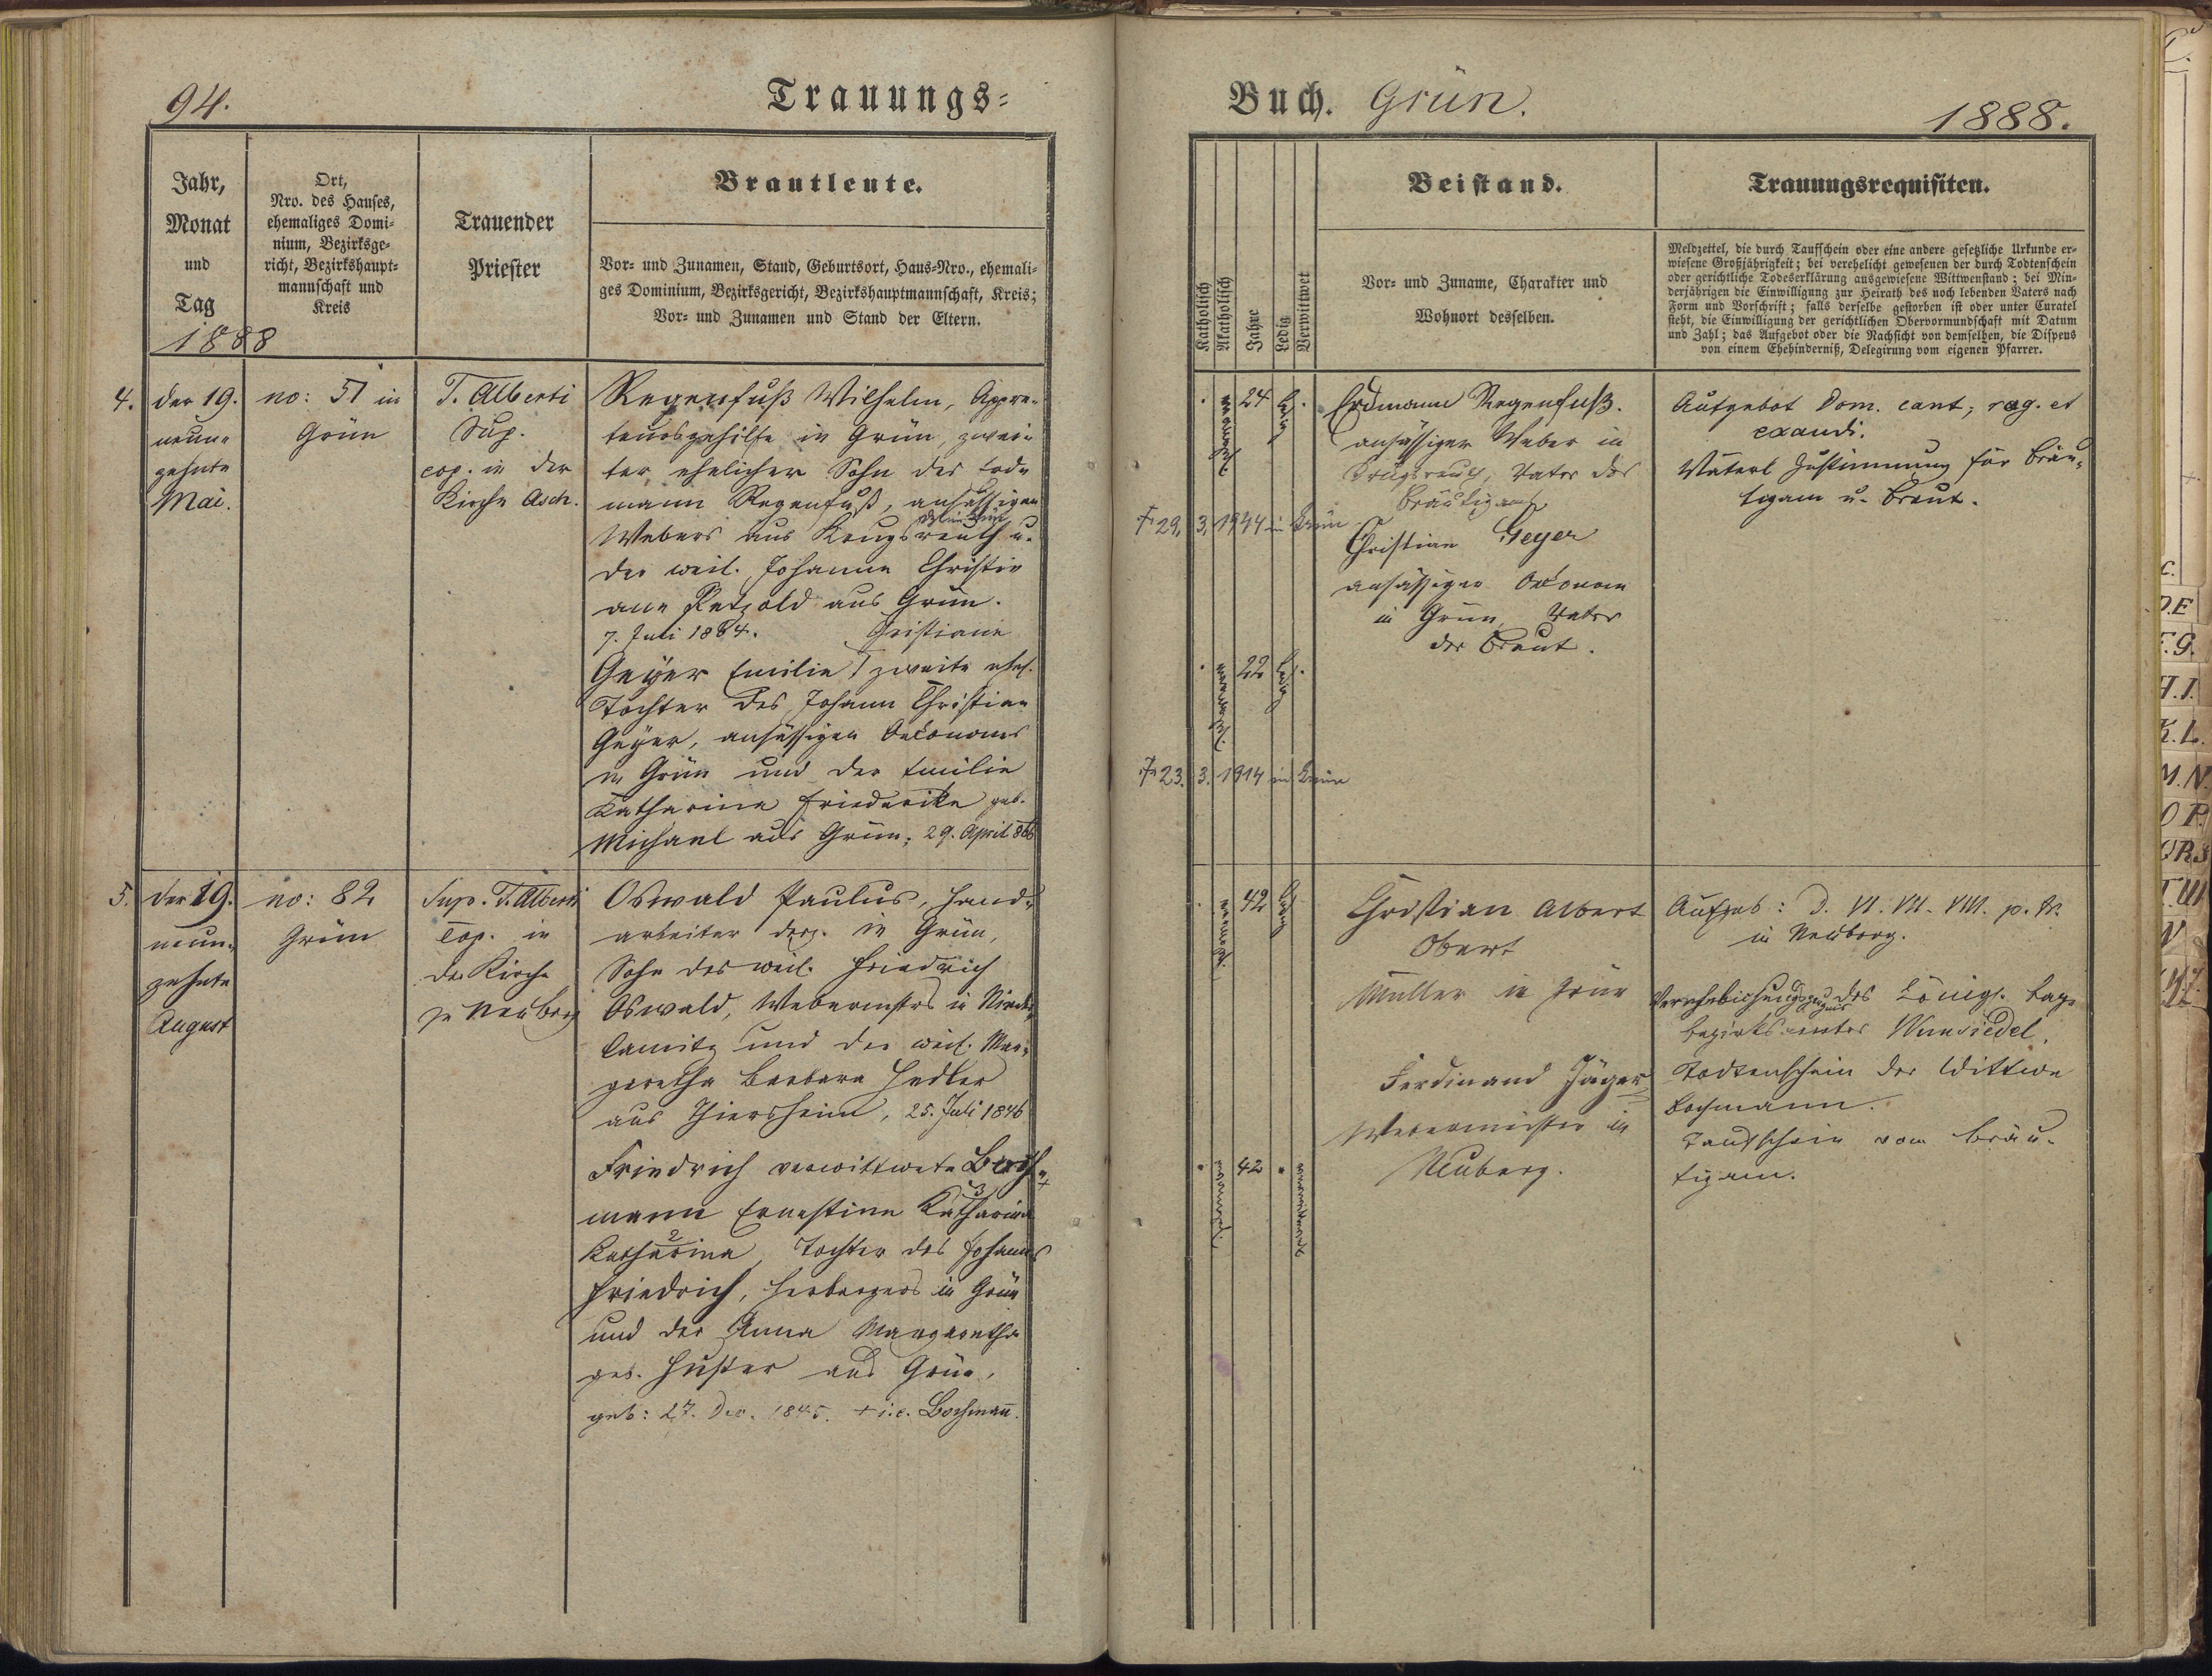 94.
Trauungs-
Jahr,
Monat
und
Tag
1888
Ort,
Nro. des Hauses,
ehemaliges Domi-
nium, Bezirksge-
richt, Bezirkshaupt-
mannschaft und
Kreis
Trauender
Priester
Brautleute.
Vor- und Zunamen, Stand, Geburtsort, Haus-Nro., ehemali-
ges Dominium, Bezirksgericht, Bezirkshauptmannschaft, Kreis;
Vor- und Zunamen und Stand der Eltern.
4.
den 19.
neun-
zehnte
Mai.
no: 51 in
Grün
T. Alberti
Sup.
cop. in der
Kirche Asch.
Regenfuß Wilhelm, Appre-
teursgehilfe in Grün, zwei-
ter ehelicher Sohn des Erd-
mann Regenfuß, ansässigen
Webers aus Krugsreuth u.
der weil. Johanne Christi-
ane Petzold aus Grün.
7. Juli 1864.
Christiane
Geyer Emilie zweite ehel.
Tochter des Johann Christian
Geyer, ansässigen Oeconoms
in Grün und der Emilie
Katharine Friederike geb.
Michael aus Grün; 29. April 866
5.
den 19.
neun-
zehnte
August
no: 82
Grün
Sup. T. Alberti
cop. in
der Kirche
zu Neuberg
Oswald Paulus, Hand-
arbeiter derz. in Grün,
Sohn des weil. Friedrich
Oswald, Webermstrs in Nieder-
lamitz und der weil. Mar-
garetha Barbara Hedler
aus Thiersheim, 25. Juli 1846
Friedrich verwittwete Boch- +
mann Ernestine Katharina 3
Katharina 2, Tochter des Johann
Friedrich, Herbergers in Grün
und der Anna Margaretha
geb. Huster aus Grün,
geb: 27. Dec. 1845. + i.e. Bochmann.
Buch. Grün.
1888.
Katholisch
Akatholisch
Jahre
Ledig
Verwittwet
Beistand.
Vor- und Zuname, Charakter und
Wohnort desselben.
Trauungsrequisiten.
Meldzettel, die durch Taufschein oder eine andere gesetzliche Urkunde er-
wiesene Großjährigkeit; bei verehelicht gewesenen der durch Todtenschein
oder gerichtliche Todeserklärung ausgewiesene Wittwenstand; bei Min-
derjährigen die Einwilligung zur Heirath des noch lebenden Vaters nach
Form und Vorschrift; falls derselbe gestorben ist oder unter Curatel
steht, die Einwilligung der gerichtlichen Obervormundschaft mit Datum
und Zahl; das Aufgebot oder die Nachsicht von demselben, die Dispens
von einem Ehehinderniß, Delegirung vom eigenen Pfarrer.
24
ledig
Erdmann Regenfuß.
ansässiger Weber in
Krugsreuth, Vater des
Bräutigams
† 29. 3. 1944 in Grün
Christian Geyer
ansässiger Oeconom
in Grün, Vater
der Braut.
22
ledig
† 23. 3. 1914 in Grün
Aufgebot Dom. cant; rog. et
exaudi.
Väterl Zustimmung für Bräu-
tigam u. Braut.
42
ledig
Christian Albert
Obert
Müller in Grün
Ferdinand Jäger
Webermeister in
Neuberg.
42
Aufgeb: D. VI. VII. VIII. p. tr.
in Neuberg.
Verehelichungszeugnis des Königl. bay.
Bezirksamtes Wunsiedel.
Todtenschein der Wittwe
Bochmann.
Taufschein vom Bräu-
tigam.